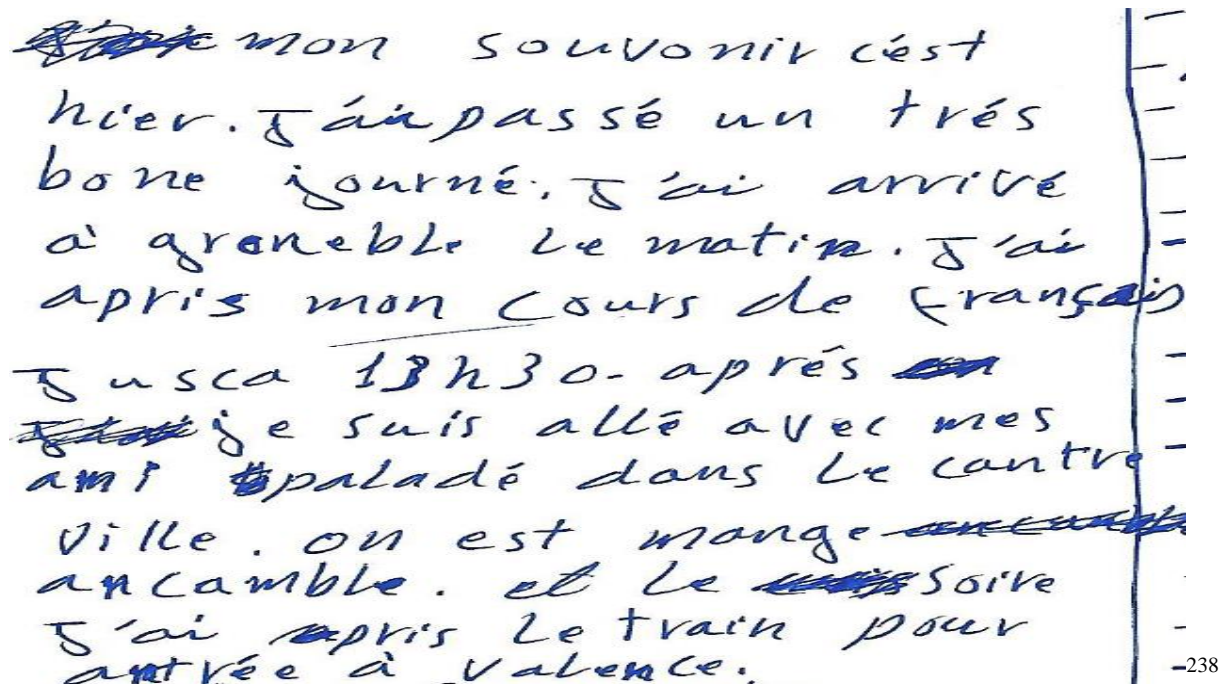 mon souvonir c'est
hier. J'ai passé un trés
bone journé. J'ai arrivé
à greneble le matin. J'ai
apris mon cours de français
Jusca 13h30- aprés
je suis allé avec mes
ami paladé dans le cantre
ville. on est mange
ancamble. et le soire
J'ai pris le train pour
antrée à valence.
-238